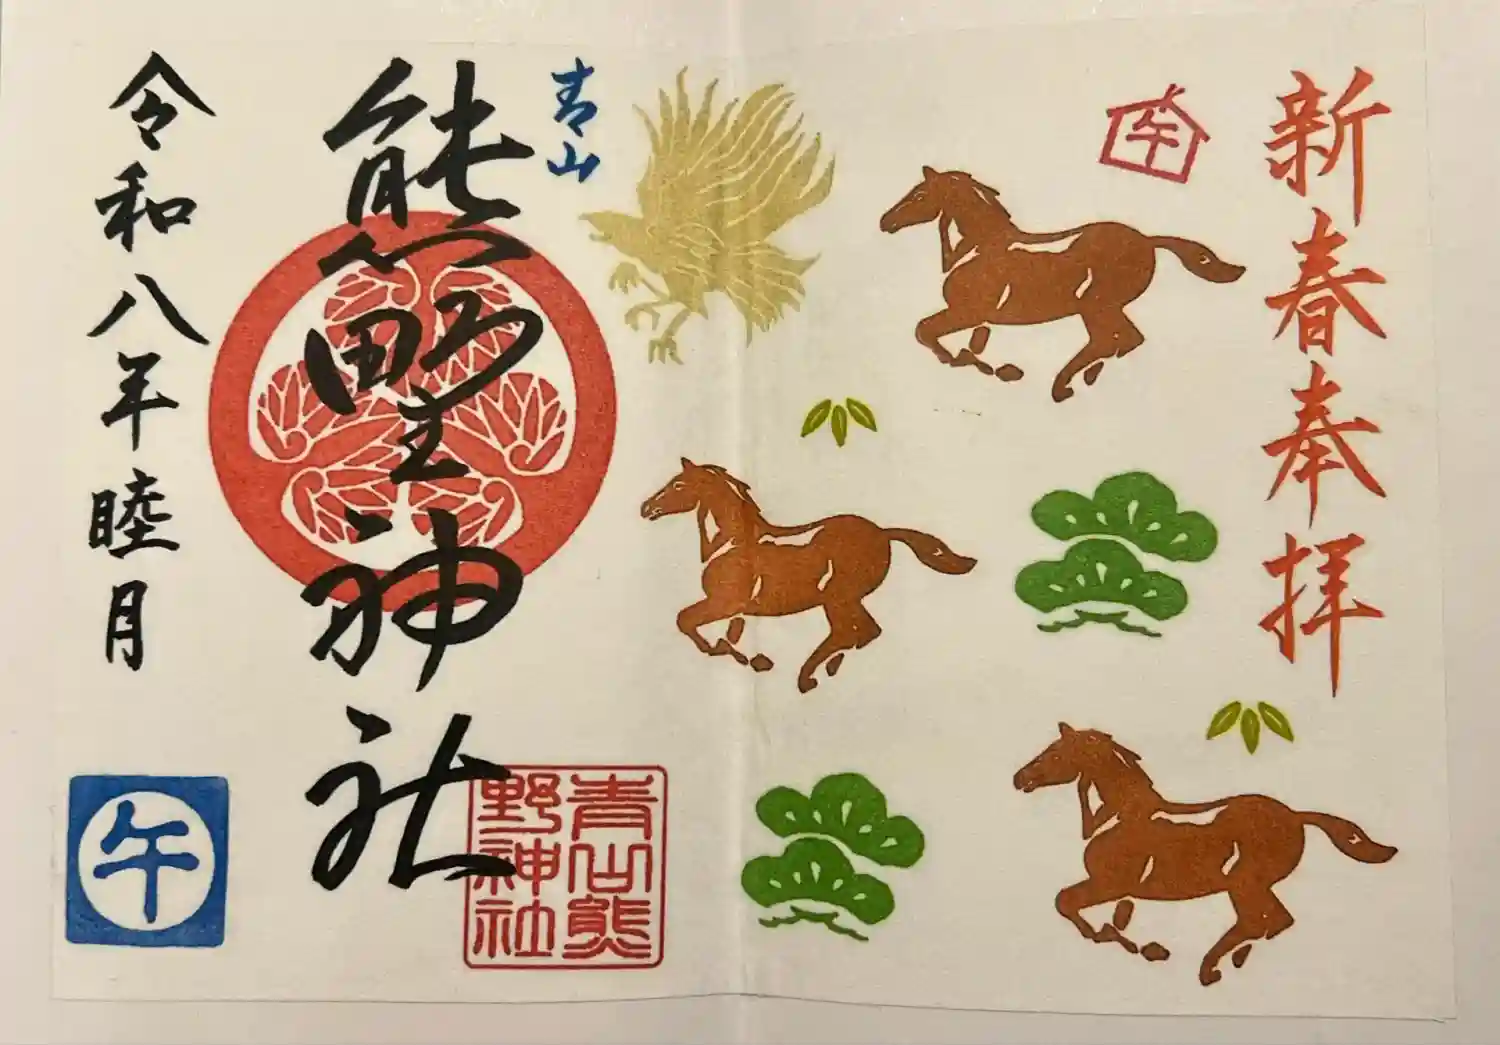 新春奉拝
午
青山
熊野神社
青山熊
野神社
令和八年睦月
午